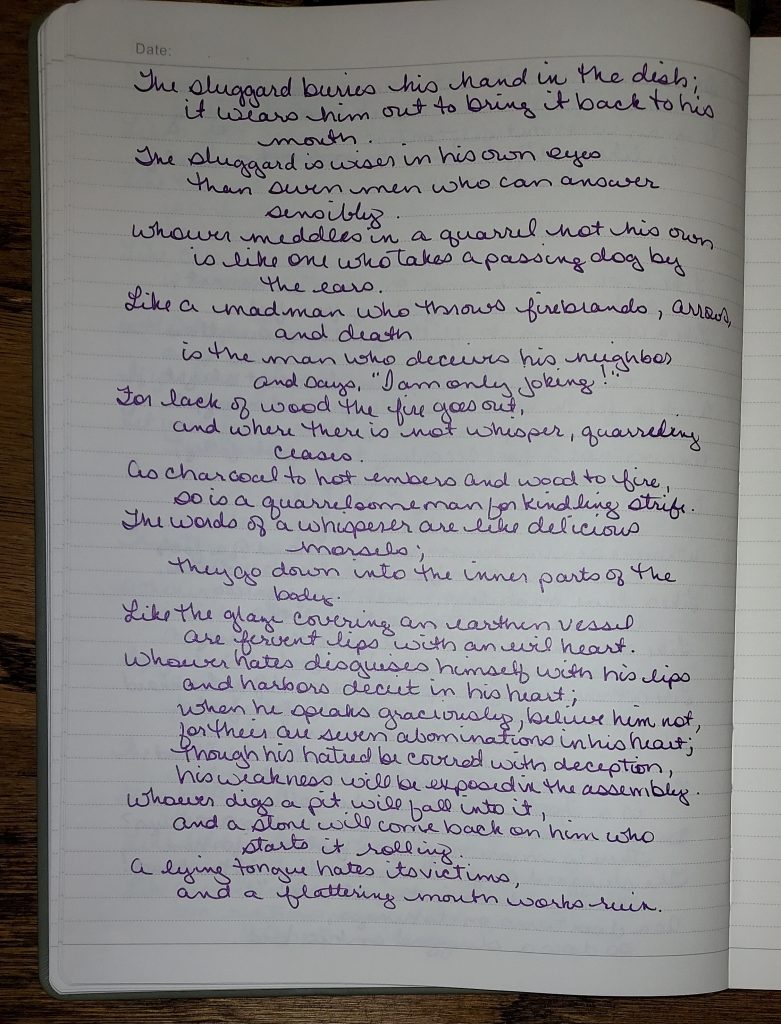 Date:
The sluggard buries his hand in the dish;
it wears him out to bring it back to his
mouth.
The sluggard is wiser in his own eyes
than seven men who can answer
sensibly.
Whoever meddles in a quarrel not his own
is like one who takes a passing dog by
the ears.
Like a madman who throws firebrands, arrows,
and death
is the man who deceives his neighbor
and says, "I am only joking!"
For lack of wood the fire goes out,
and where there is not whisper, quarreling
ceases.
As charcoal to hot embers and wood to fire,
so is a quarrelsome man for kindling strife.
The words of a whisperer are like delicious
morsels;
they go down into the inner parts of the
body.
Like the glaze covering an earthen vessel
are fervent lips with an evil heart.
Whoever hates disguises himself with his lips
and harbors deceit in his heart;
when he speaks graciously, believe him not,
for their are seven abominations in his heart;
though his hatred be covered with deception,
his weakness will be exposed in the assembly.
Whoever digs a pit will fall into it,
and a stone will come back on him who
starts it rolling.
A lying tongue hates its victims,
and a flattering mouth works ruin.